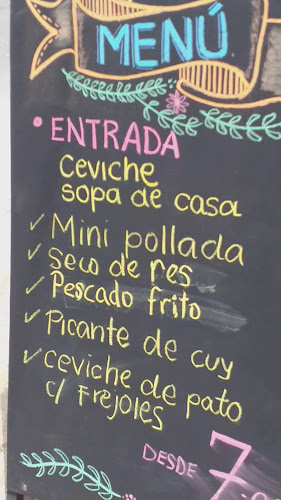 MENÚ
• ENTRADA
Ceviche
sopa de casa
✓ Mini pollada
✓ Seco de res
✓ Pescado frito
✓ Picante de cuy
✓ ceviche de pato
c/ Frejoles
DESDE 7.